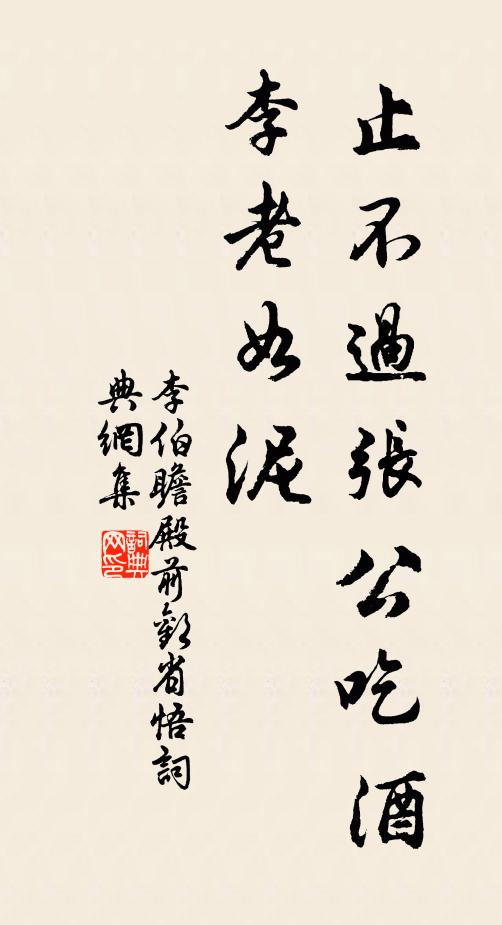 止不過張公吃酒
李老如泥
李伯瞻殿前歡省悟詞
典網集
詞典
网印